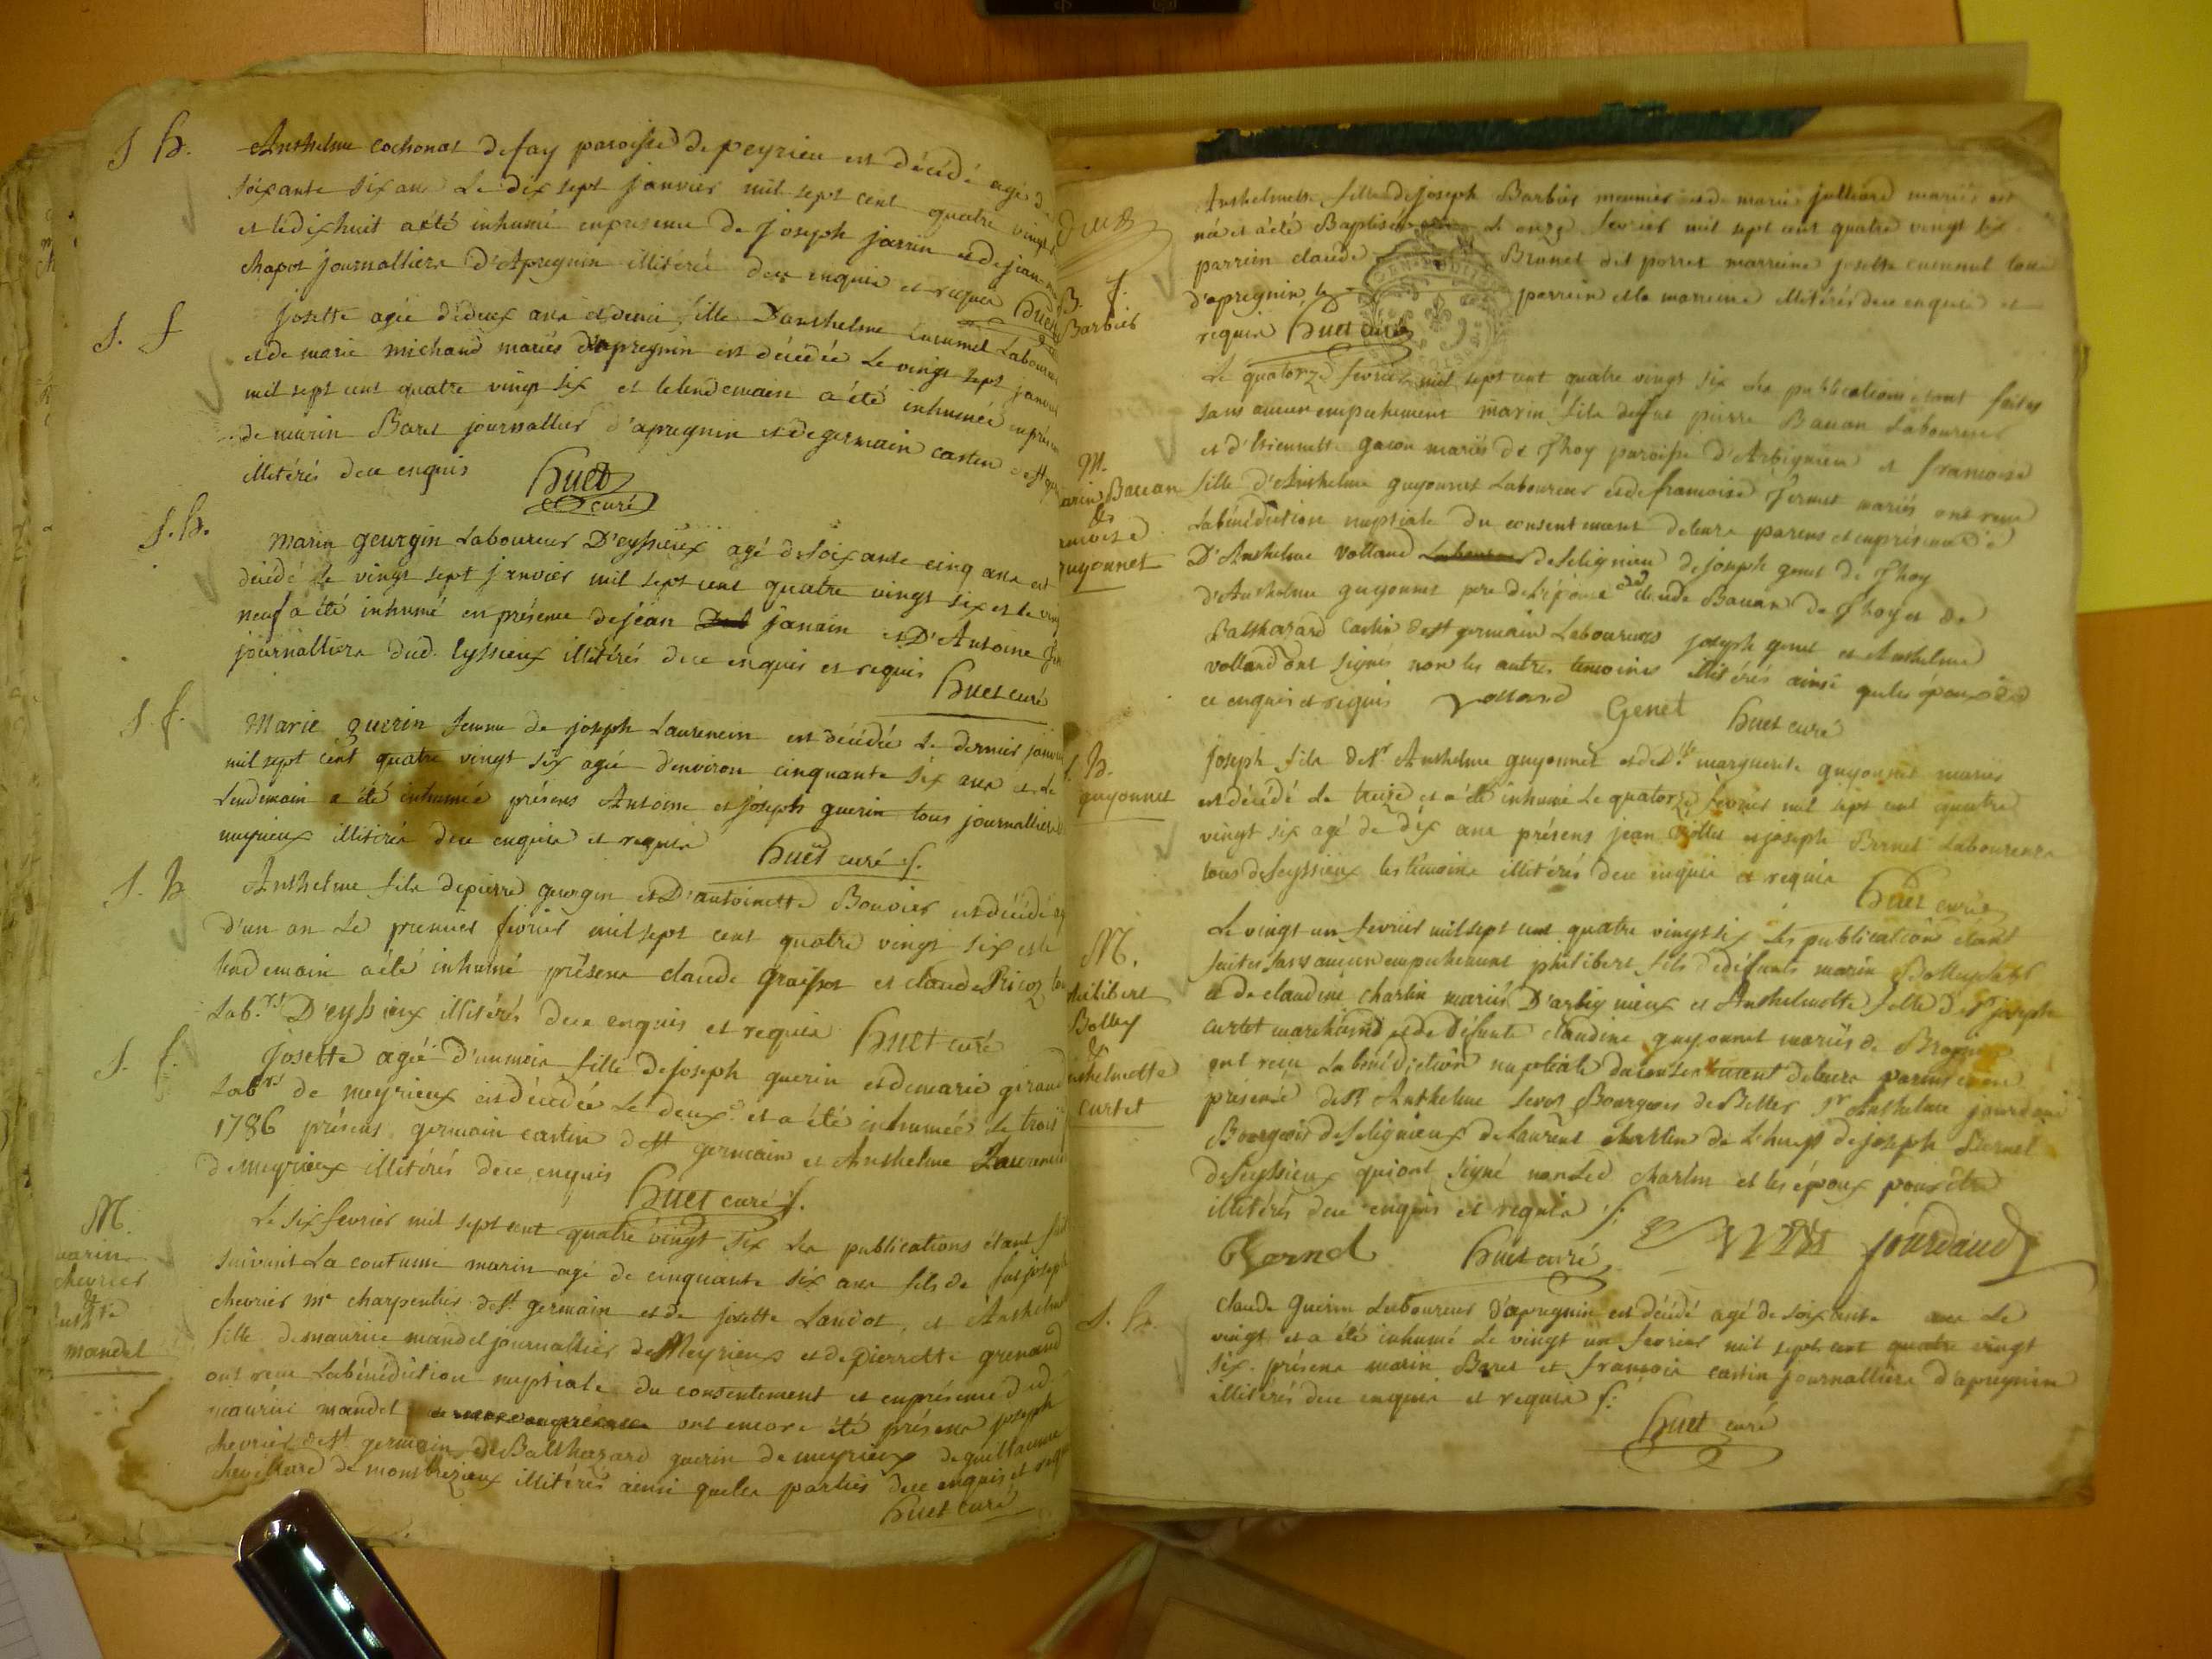 S h. Anthelme cochonat de fay paroisse de peyrieu est décédé agé de
soixante six ans Le dix sept janvier mil sept cent quatre vingt
et le dix huit a été inhumé en presence de Joseph jarrin et de jean
chapot journalliers D'Apregnin illiterés de ce enquis et requis huet
S. f Josette agée de deux ans et demi fille D'anthelme cucumel Laboureur
et de marie michaud mariés d'apregnin est décédée Le vingt sept janvier
mil sept cent quatre vingt six et le lendemain a été inhumée en présence
de marin Baret journallier d'apregnin et de germain castin de st
illitérés de ce enquis huet
curé
S. h. marin georgin Laboureur D'eyssieux agé de soixante cinq ans est
décédé le vingt sept janvier mil sept cent quatre vingt six et le vingt
neuf a été inhumé en présence de jean janain et D'Antoine
journalliers dud. Eyssieux illitérés de ce enquis et requis
huet curé
S. f. Marie guerin femme de joseph Laurencin est décédée Le dernier janvier
mil sept cent quatre vingt six agée d'environ cinquante six ans et le
Lendemain a été inhumée présens Antoine et joseph guerin tous journalliers
meyrieux illitérés de ce enquis et requis
huet curé f.
S. h Anthelme fils de pierre georgin et D'antoinette Bouvier est décédé
d'un an Le premier fevrier mil sept cent quatre vingt six et le
lendemain a été inhumé présens claude graisset et claude
Lab.rs D'eyssieux illitérés de ce enquis et requis huet curé
S. f. Josette agée d'un mois fille de joseph guerin et de marie giraud
Labrs de meyrieux est décédée Le deux et a été inhumée Le trois
1786 présens germain castin de st germain et Anthelme Laurencin
de meyrieux illitérés de ce enquis huet curé f.
M.
marin
chevrier
&
mandel
Le six fevrier mil sept cent quatre vingt six Les publications étant faites
suivant La coutume marin agé de cinquante six ans fils de fut joseph
chevrier me charpentier de st. germain et de josette Landot, et Anthelme
fille de maurice mandel journallier de Meyrieux et de pierrette grenand
ont recu Labénédiction nuptiale du consentement et en présence dud.
maurice mandel ont encore été présens joseph
chevrier de st. germain de Balthazard guerin de meyrieux de guillaume
chevillard de montbrezieux illitérés ainsi que les parties de ce enquis et requis
huet curé
deux
B. f.
Barbier
Anthelmette fille de joseph Barbier meunier et de marie julliard mariés est
née et a été Baptisée Le onze fevrier mil sept cent quatre vingt six
parrein claude Brunet dit porret marreine josette cucumel tous
d'apregnin le parrein et la marreine illitérés de ce enquis et
requis huet curé
M.
marin Bavan
&
francoise
guyonnet
Le quatorze fevrier mil sept cent quatre vingt six Les publications étant faites
sans aucun empechement marin fils de fut pierre Bavan Laboureur
et d'Etiennette gacon mariés de Thoy paroisse d'Arbignieu et francoise
fille d'Anthelme guyonnet Laboureur et de francoise fernet mariés ont recu
Labénédiction nuptiale du consentement de leurs parens et en présence
D'Anthelme Volland de Selignieu de joseph genet de Thoy
d'Anthelme guyonnet pere de l'épouse de claude Bavan de Thoy et de
Balthazard castin de st germain Laboureurs joseph genet et Anthelme
volland ont signés non les autres temoins illitérés ainsi que les époux
ce enquis et requis Volland Genet huet curé
S. h.
guyonnet
joseph fils de sr. Anthelme guyonnet et de Dlle marguerite guyonnet mariés
est décédé Le treize et a été inhumé Le quatorze fevrier mil sept cent quatre
vingt six agé de dix ans présens jean et joseph Bernel Laboureurs
tous de Seyssieux les témoins illitérés de ce enquis et requis
huet curé
M.
philibert
Bolley
&
Anthelmette
curtet
Le vingt un fevrier mil sept cent quatre vingt six Les publications étant
faites sans aucun empechement philibert fils de défunts marin
et de claudine charlin mariés D'arbignieux et Anthelmette fille de sr joseph
curtet marchand et de Défunte claudine guyonnet mariés de
ont recu La bénédiction nuptiale du consentement de leurs parens et en
présence de sr. Anthelme Bourgeois de Belley sr Anthelme jourdand
Bourgeois de Selignieux de Laurent charlin de de joseph Bernel
de Seyssieux qui ont signé non Led charlin et les époux pour être
illitérés de ce enquis et requis f.
Bernel huet curé jourdand
S. h.
claude guerin Laboureur d'apregnin est décédé agé de soixante ans Le
vingt et a été inhumé Le vingt un fevrier mil sept cent quatre vingt
six présens marin Baret et francois castin journalliers d'apregnin
illitérés de ce enquis et requis f.
huet curé